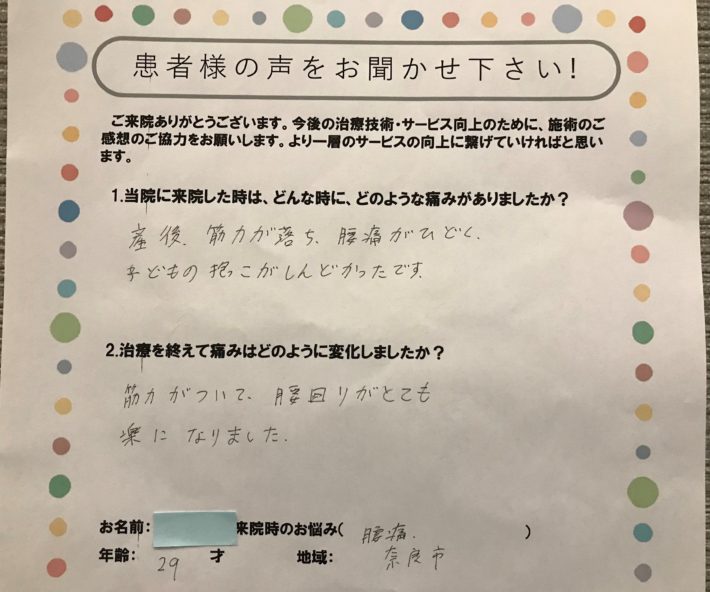 患者様の声をお聞かせ下さい!
ご来院ありがとうございます。今後の治療技術・サービス向上のために、施術のご
感想のご協力をお願いします。より一層のサービスの向上に繋げていければと思い
ます。
1.当院に来院した時は、どんな時に、どのような痛みがありましたか?
産後、筋力が落ち、腰痛がひどく、
子どもの抱っこがしんどかったです。
2.治療を終えて痛みはどのように変化しましたか?
筋力がついて、腰回りがとても
楽になりました。
お名前: 来院時のお悩み( 腰痛. )
年齢: 29 才 地域: 奈良市